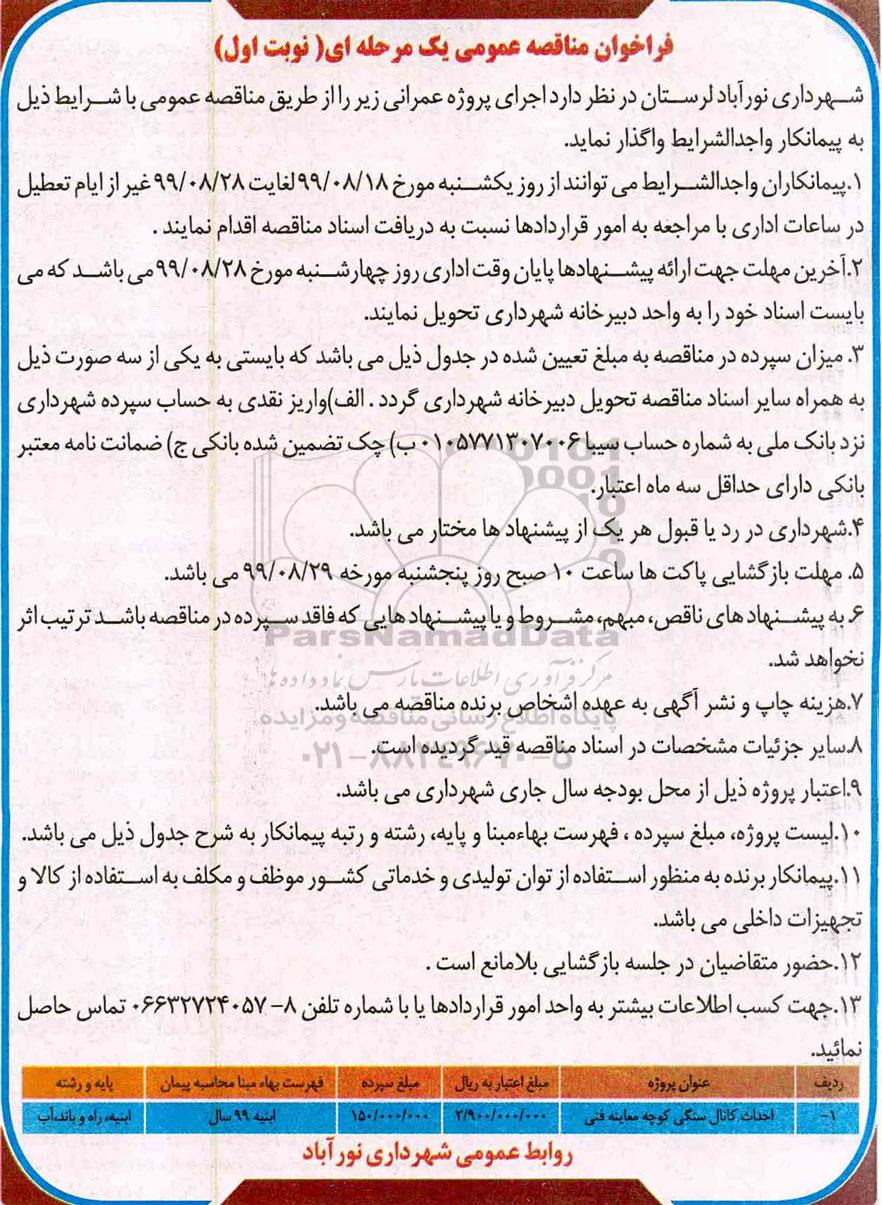 فراخوان مناقصه عمومی یک مرحله ای( نوبت اول)
شهرداری نورآباد لرستان در نظر دارد اجرای پروژه عمرانی زیر را از طریق مناقصه عمومی با شرایط ذیل
به پیمانکار واجدالشرایط واگذار نماید.
۱.پیمانکاران واجدالشرایط می توانند از روز یکشنبه مورخ ۹۹/۰۸/۱۸ لغایت ۹۹/۰۸/۲۸ غیر از ایام تعطیل
در ساعات اداری با مراجعه به امور قراردادها نسبت به دریافت اسناد مناقصه اقدام نمایند .
۲.آخرین مهلت جهت ارائه پیشنهادها پایان وقت اداری روز چهارشنبه مورخ ۹۹/۰۸/۲۸ می باشد که می
بایست اسناد خود را به واحد دبیرخانه شهرداری تحویل نمایند.
۳. میزان سپرده در مناقصه به مبلغ تعیین شده در جدول ذیل می باشد که بایستی به یکی از سه صورت ذیل
به همراه سایر اسناد مناقصه تحویل دبیرخانه شهرداری گردد . الف)واریز نقدی به حساب سپرده شهرداری
نزد بانک ملی به شماره حساب سیبا ۰۱۰۵۷۷۱۳۰۷۰۰۶ ب) چک تضمین شده بانکی ج) ضمانت نامه معتبر
بانکی دارای حداقل سه ماه اعتبار.
۴.شهرداری در رد یا قبول هر یک از پیشنهاد ها مختار می باشد.
۵. مهلت بازگشایی پاکت ها ساعت ۱۰ صبح روز پنجشنبه مورخه ۹۹/۰۸/۲۹ می باشد.
۶. به پیشنهاد های ناقص، مبهم، مشروط و یا پیشنهاد هایی که فاقد سپرده در مناقصه باشد ترتیب اثر
نخواهد شد.
ParsNamadData
مرکز فرآوری اطلاعات پارس نماد داده ها
۷.هزینه چاپ و نشر آگهی به عهده اشخاص برنده مناقصه می باشد.
پایگاه اطلاع رسانی مناقصه و مزایده
۸.سایر جزئیات مشخصات در اسناد مناقصه قید گردیده است.
۰۲۱-۸۸۳۴۹۶۷۰-۵
۹.اعتبار پروژه ذیل از محل بودجه سال جاری شهرداری می باشد.
۱۰.لیست پروژه، مبلغ سپرده ، فهرست بهاءمبنا و پایه، رشته و رتبه پیمانکار به شرح جدول ذیل می باشد.
۱۱.پیمانکار برنده به منظور استفاده از توان تولیدی و خدماتی کشور موظف و مکلف به استفاده از کالا و
تجهیزات داخلی می باشد.
۱۲.حضور متقاضیان در جلسه بازگشایی بلامانع است .
۱۳.جهت کسب اطلاعات بیشتر به واحد امور قراردادها یا با شماره تلفن ۸- ۰۶۶۳۲۷۲۴۰۵۷ تماس حاصل
نمائید.
ردیف عنوان پروژه مبلغ اعتبار به ریال مبلغ سپرده فهرست بهاء مبنا محاسبه پیمان پایه و رشته
۱- احداث کانال سنگی کوچه معاینه فنی ۲/۹۰۰/۰۰۰/۰۰۰ ۱۵۰/۰۰۰/۰۰۰ ابنیه ۹۹ سال ابنیه، راه و باند، آب
روابط عمومی شهرداری نورآباد